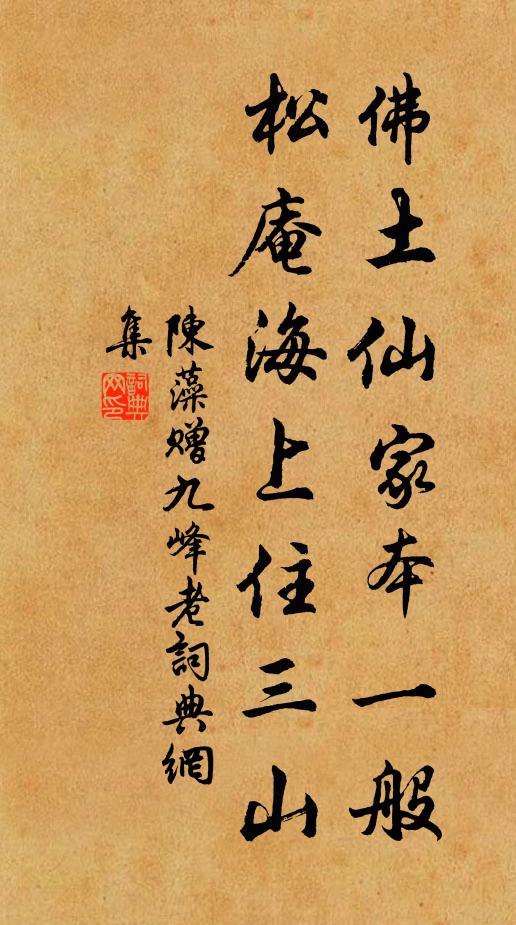 佛土仙家本一般
松庵海上住三山
陳藻贈九峰老詞典網
集
詞典網印